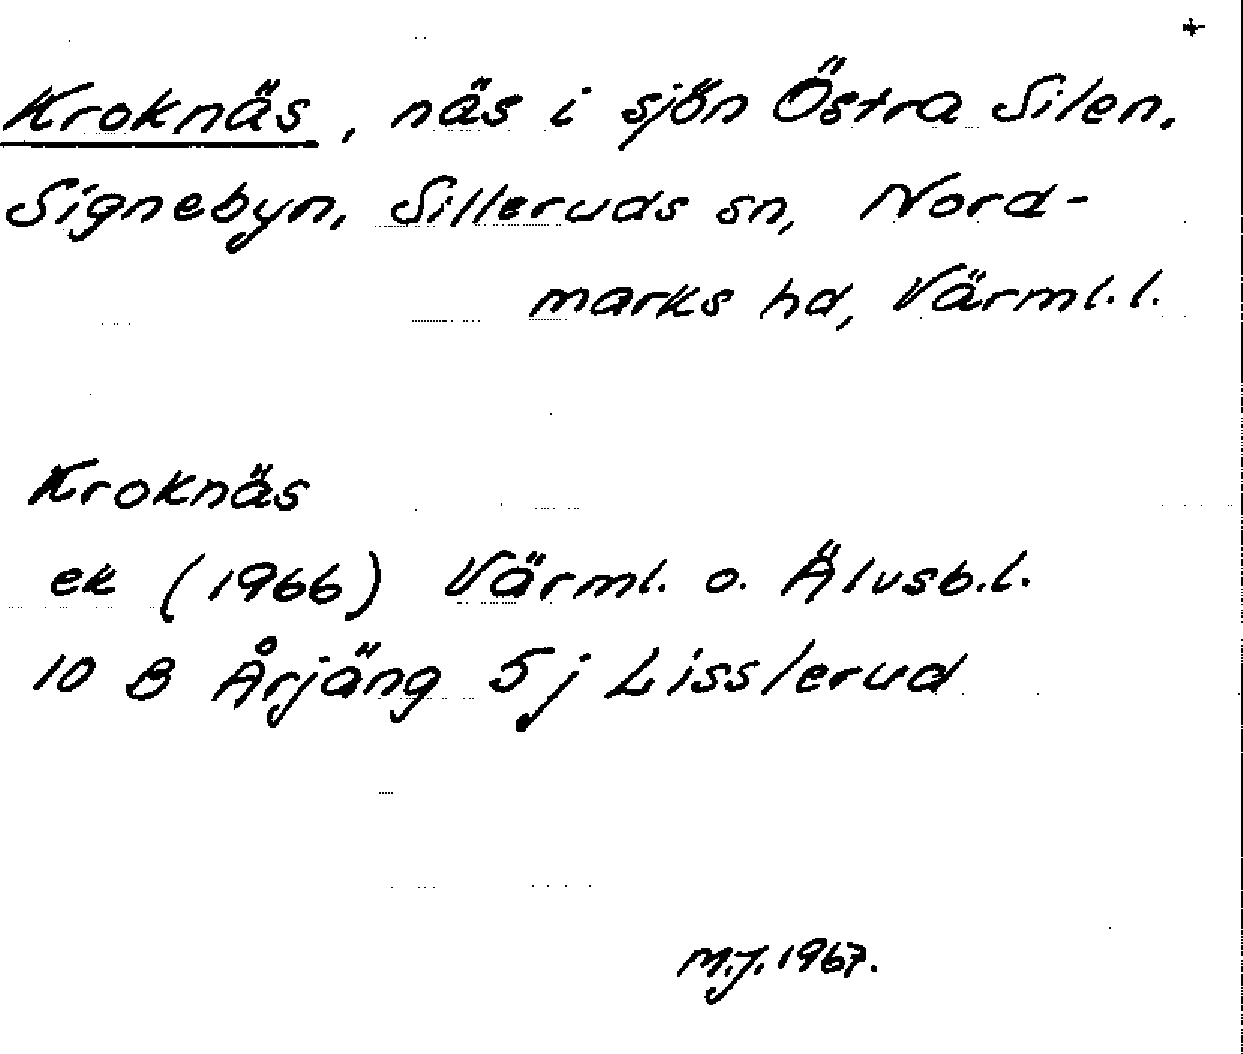 +
Kroknäs, näs i sjön Östra Silen,
Signebyn, Silleruds sn, Nord-
marks hd, Värml. l.
Kroknäs
ek (1966) Värml. o. Älvsb.l.
10 B Årjäng 5 j Lisslerud
M.J. 1967.